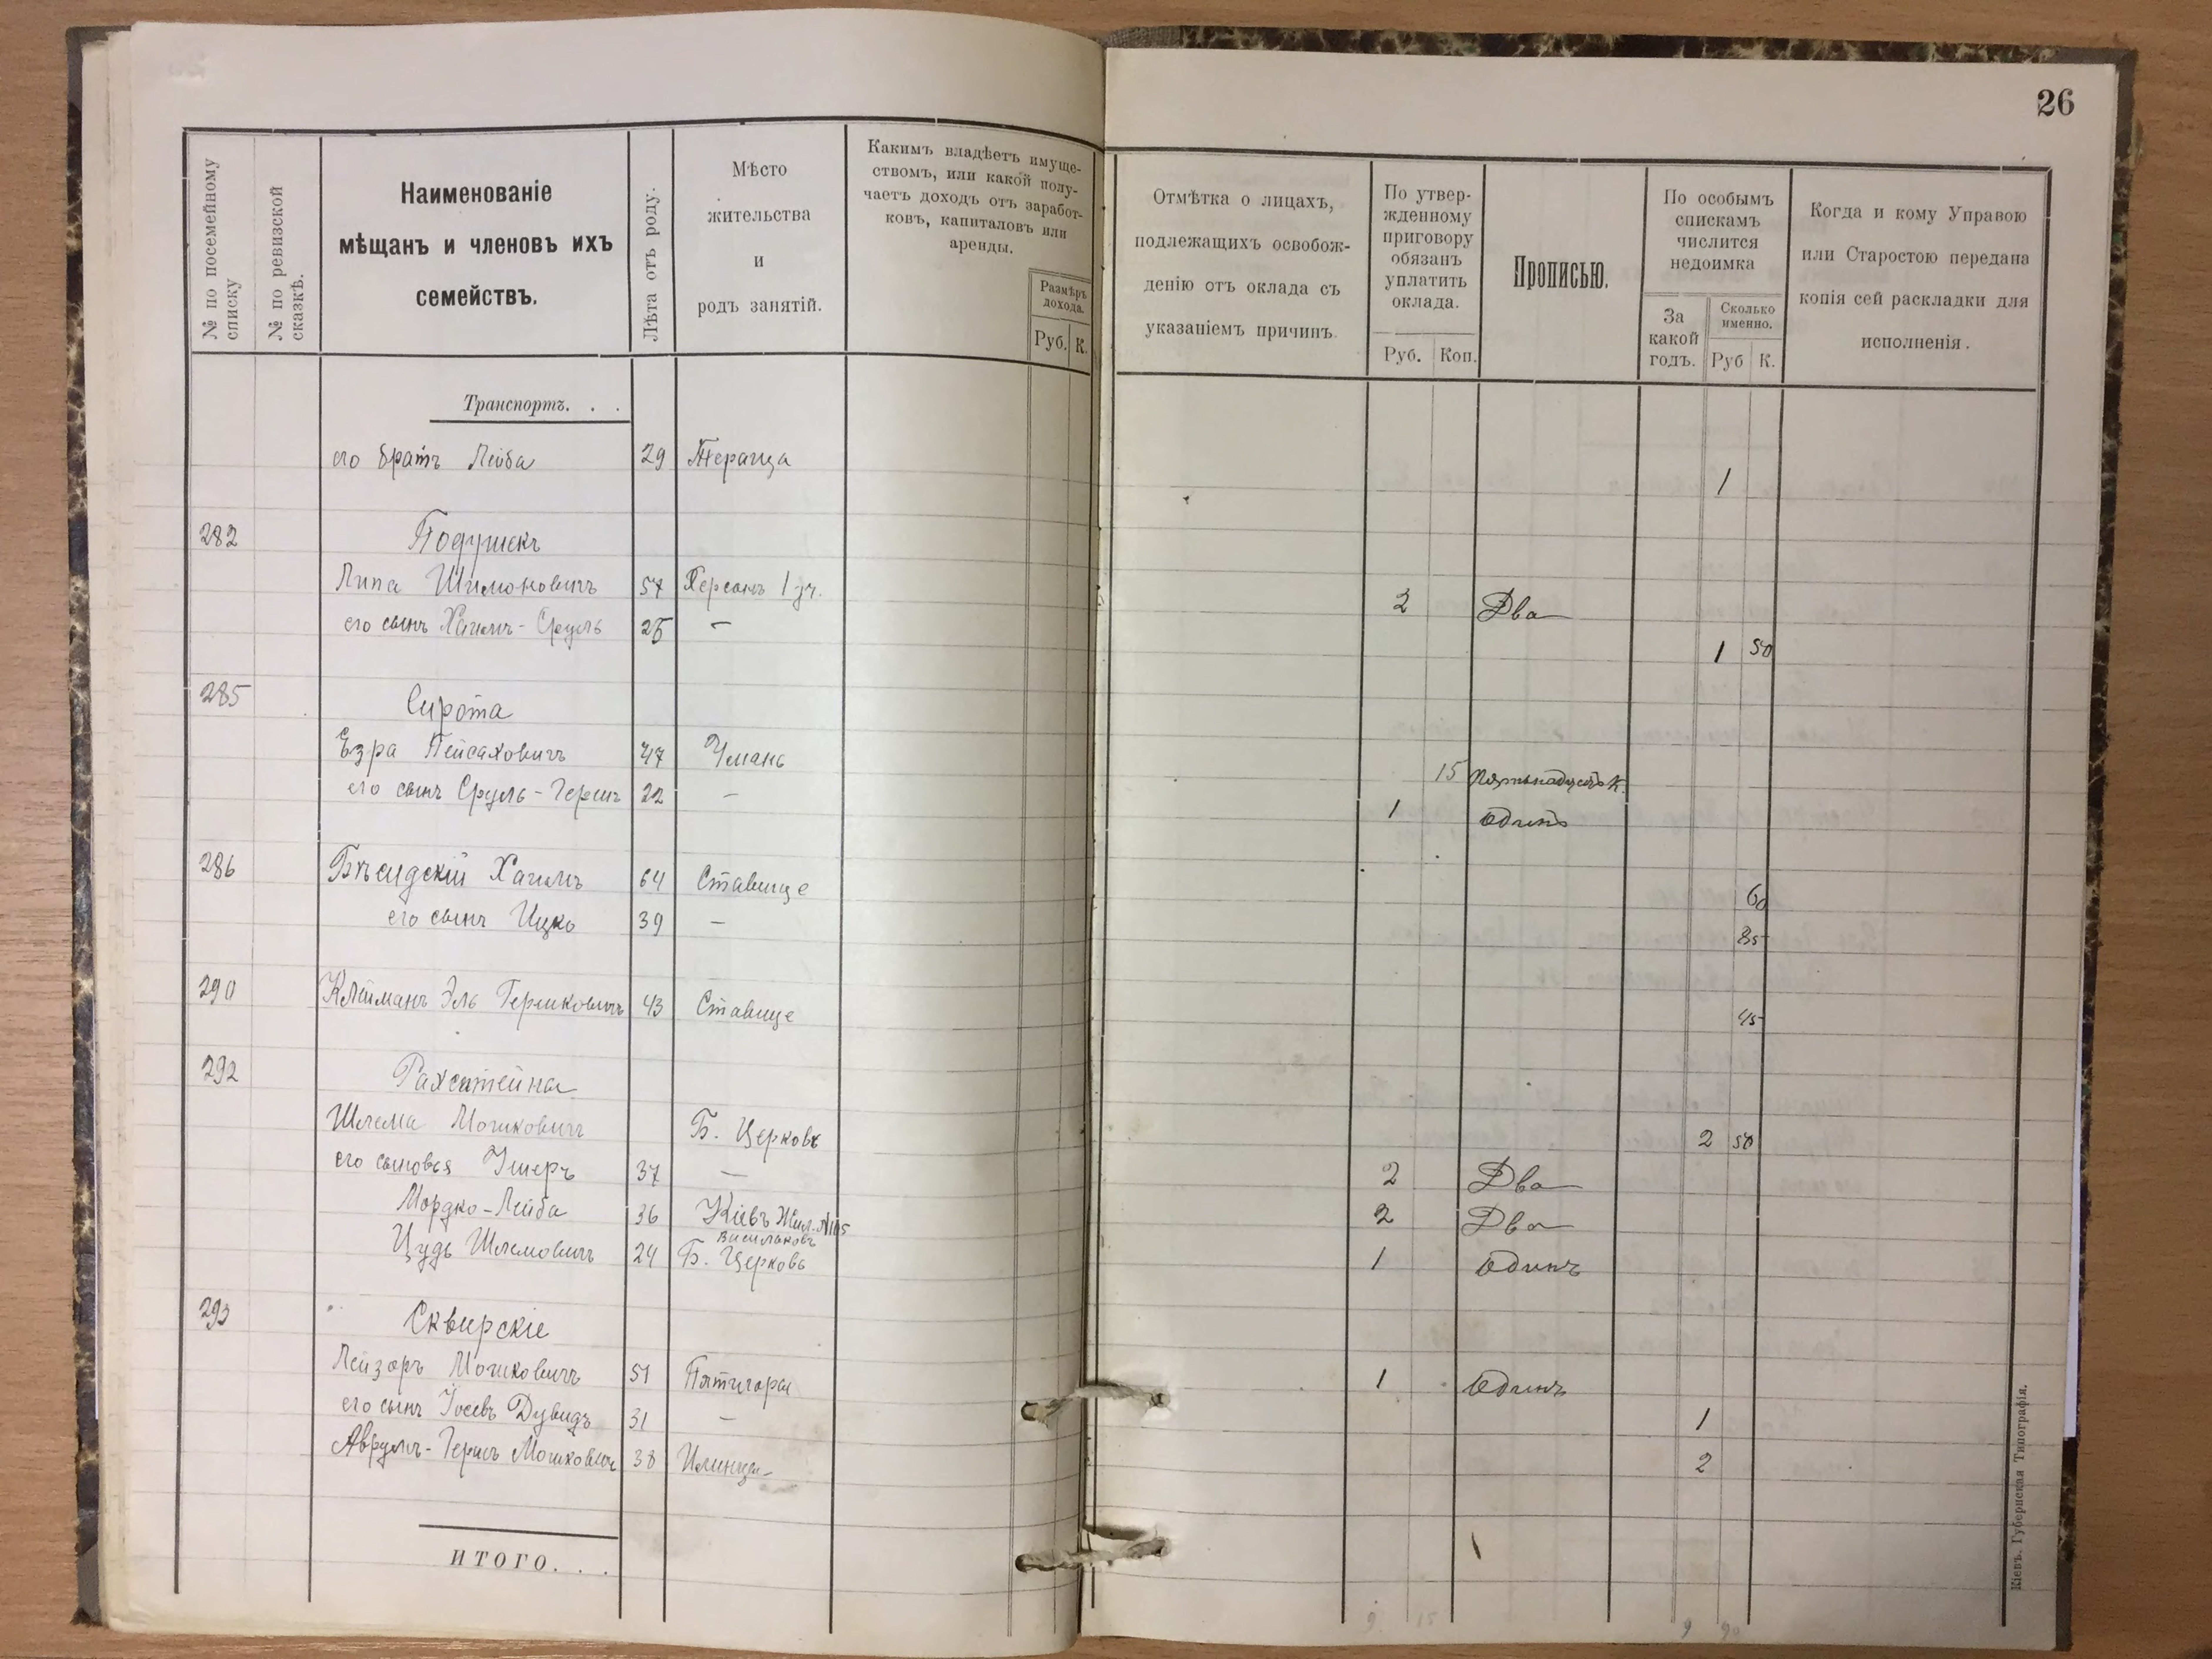 26
№ по посемейному списку
№ по ревизской сказкѣ.
Наименованіе
мѣщанъ и членовъ ихъ
семействъ.
Лѣта отъ роду.
Мѣсто
жительства
и
родъ занятій.
Какимъ владѣетъ имуще-
ствомъ, или какой полу-
чаетъ доходъ отъ заработ-
ковъ, капиталовъ или
аренды.
Размѣръ
дохода.
Руб. К.
Отмѣтка о лицахъ,
подлежащихъ освобож-
денію отъ оклада съ
указаніемъ причинъ.
По утвер-
жденному
приговору
обязан
уплатить
оклада.
Руб. Коп.
Прописью.
По особымъ
спискамъ
числится
недоимка
За
какой
годъ.
Сколько
именно.
Руб К.
Когда и кому Управою
или Старостою передана
копія сей раскладки для
исполненія.
Транспортъ. . .
его братъ Лейба 29 1
282 Подушекъ
Липа Шимоновичъ 57 Херсонъ 1 уч. 2 Два
его сынъ Хаимъ-Сруль 25 — 1 50
285 Сирота
Езра Пейсаховичъ 47 Умань 15 пятьнадцать к.
его сынъ Сруль-Герш 22 — 1 Одинъ
286 Хаимъ 64 Ставище 60
его сынъ Ицко 39 — 85
290 Клейманъ Эль Гершковичъ 43 Ставище 45
292 Рахштейна
Шлема Мошковичъ Б. Церковь 2 50
его сыновья Ушеръ 37 — 2 Два
Мордко-Лейба 36 Кіевъ 2 Два
Васильковъ
Цудь Шлемовичъ 24 Б. Церковь 1 Одинъ
293 Сквирскіе
Лейзоръ Мошковичъ 51 Пятигоры 1 Одинъ
его сынъ Іосевъ Дувидъ 31 — 1
Аврумъ-Гершъ Мошковичъ 38 Илинцы 2
ИТОГО. . .
9 15 9 90
Кіевъ. Губернская Типографія.